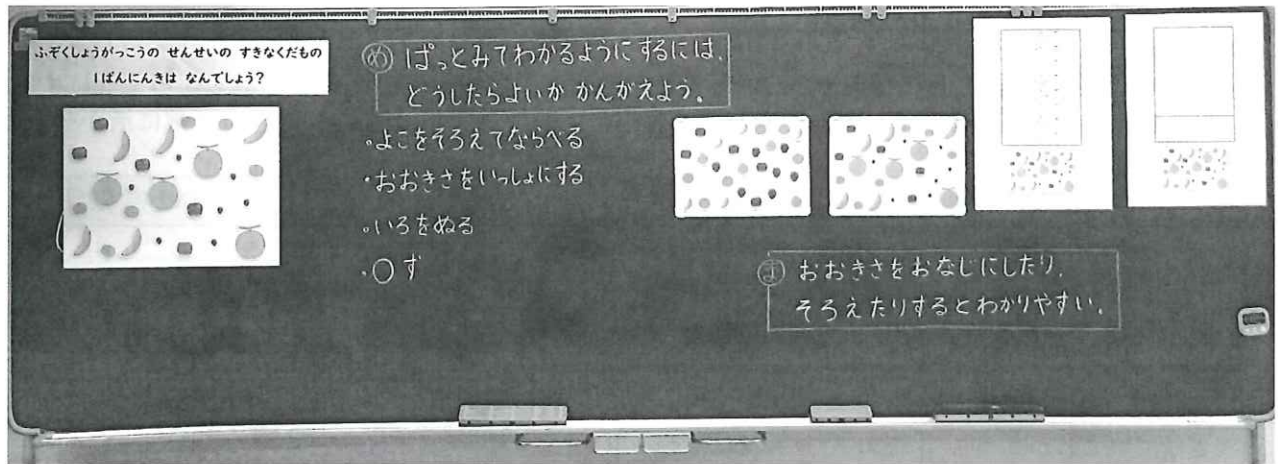 ふぞくしょうがっこうの せんせいの すきなくだもの
1ばんにんきは なんでしょう?
め ぱっとみてわかるようにするには、
どうしたらよいか かんがえよう。
・よこをそろえてならべる
・おおきさをいっしょにする
・いろをぬる
・○ず
ま おおきさをおなじにしたり、
そろえたりするとわかりやすい。